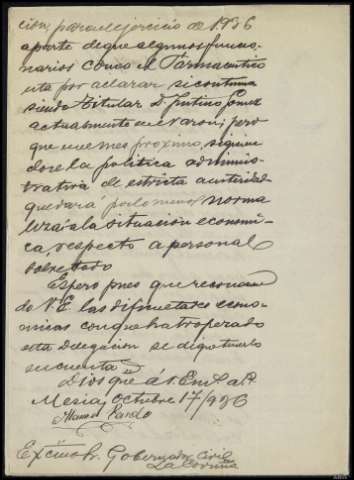 ción, para el ejercicio de 1936
aparte de que algunos funcio-
narios como el Farmaceutico
esta por aclarar si continua
siendo titular D. Gomez
actualmente en Naron; pero
que en el mes proximo, siguien-
dose la politica adminis-
trativa de estricta austeridad
quedará por lo menos norma-
lizada la situación economi-
ca, respecto a personal
sobre todo
Espero pues que reconocien-
do V.E. las dificultades econo-
micas con que ha tropezado
esta Delegacion se digne tenerlo
en cuenta
Dios que á V.E. m. a.
Mesia, Octubre 17/936
Manuel Pardo
Excmo Sr. Gobernador Civil
La Coruña